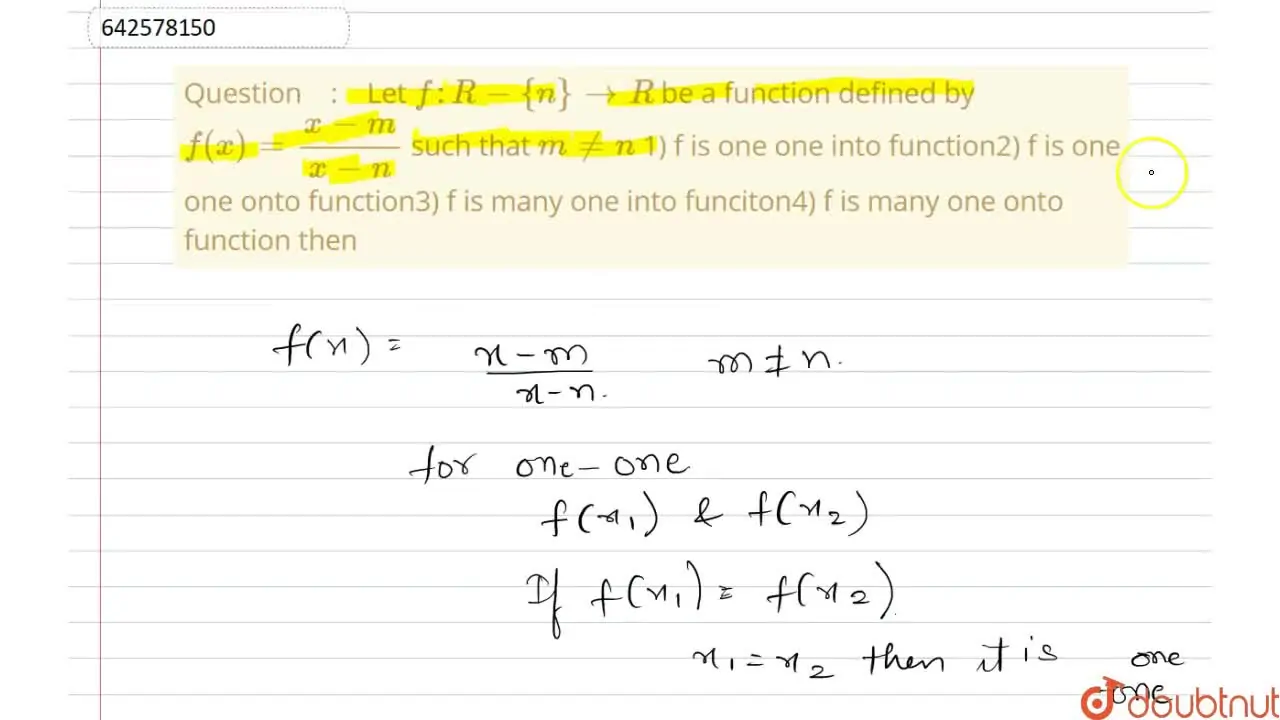 642578150
Question : Let f : R − {n} → R be a function defined by
f(x) = \frac{x − m}{x − n} such that m ≠ n 1) f is one one into function2) f is one
one onto function3) f is many one into funciton4) f is many one onto
function then
f(x) = \frac{x − m}{x − n.} m ≠ n.
for one-one
f(x₁) & f(x₂)
If f(x₁) = f(x₂)
x₁ = x₂ then it is one
-one
doubtnut